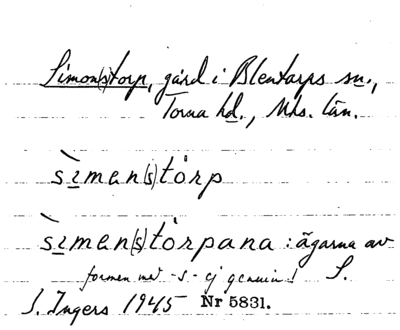 Simon(s)torp, gård i Blentarps sn.,
Torna hd., Mhs. län.
sìmen(s)tȯrp
sìmen(s)tȯrpana : ägarna av
formen med -s- ej genuin! S.
I. Ingers 1945 Nr 5831.